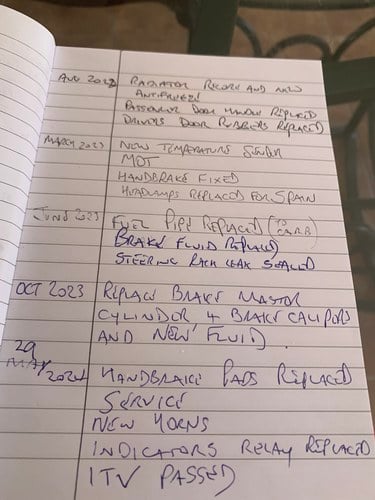 AUG 2022 RADIATOR RECORE AND NEW
ANTIFREEZE
PASSENGER DOOR WINDOW REPLACED
DRIVERS DOOR RUBBERS REPLACED
MARCH 2023 NEW TEMPERATURE SENDER
MOT
HANDBRAKE FIXED
HEADLAMPS REPLACED FOR SPAIN
JUNE 2023 FUEL PIPE REPLACED (TO CARB)
BRAKE FLUID REPLACED
STEERING RACK LEAK SEALED
OCT 2023 REPLACE BRAKE MASTOR
CYLINDER 4 BRAKE CALIPORS
AND NEW FLUID.
29
MAY/2024 HANDBRAKE PADS REPLACED
SERVICE
NEW HORNS
INDICATORS RELAY REPLACED
ITV PASSED